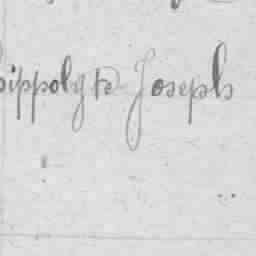 hippolyte Joseph